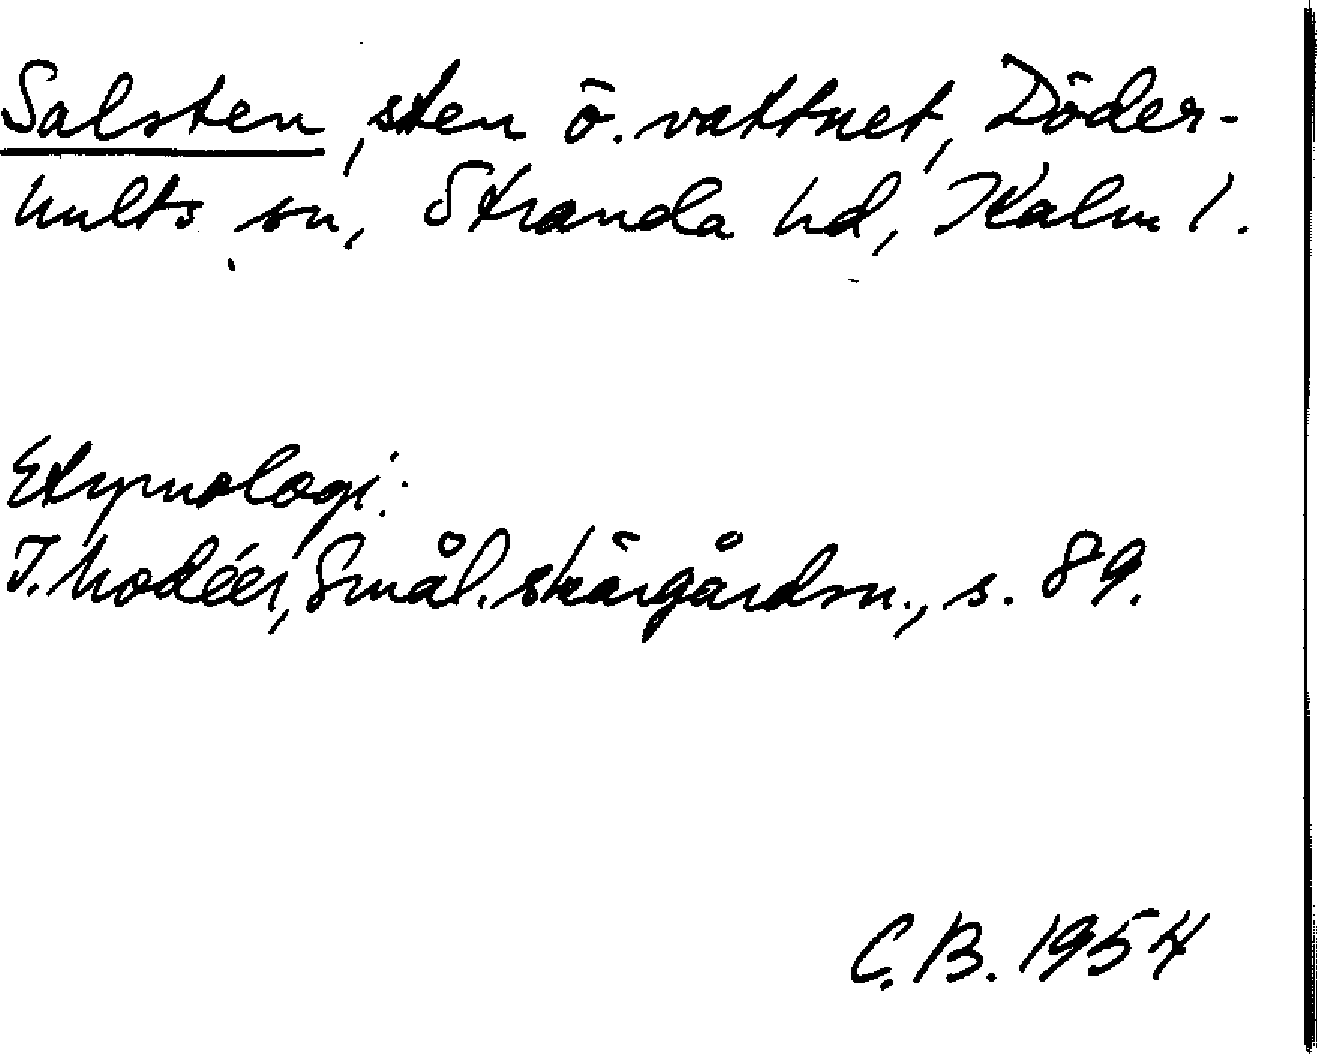 Salsten, sten ö. vattnet, Döder-
hults sn, Stranda hd, Kalm l.
Etymologi:
I. Modéer, Smål. skärgårdsn., s. 89.
C. B. 1954